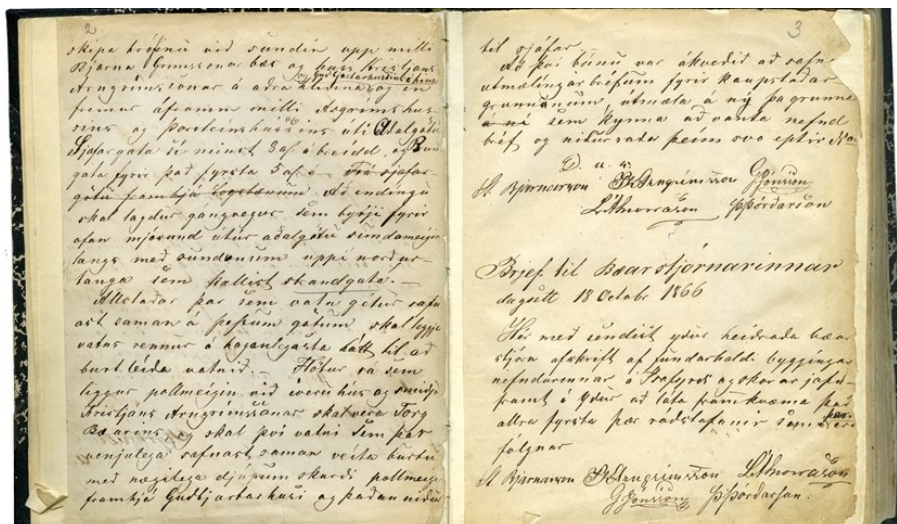 2
skipa tröðinu við sundin upp milli
Bjarna Grimssonar bæ og huss Kristjáns
og Guðbjartarhussins á hina
Arngrimssonar á aðra hliðina, og en
fremur áframm milli Asgrimshus
sins og Þorsteinshússins úti Aðalgötu
Sjofargata sé meinst 3 af. á breidd, og Bun
gata fyrir það fyrsta 5 af. á
götu frammhjá Að endingu
skal lagður gángvegur sem byrji fyrir
ofan mjósund útúr aðalgötu sundameigin
langs með sundunum uppí norður
tanga sem kallist skandgata. —
Allstaðar þar sem vatn getur safn
ast saman á þessum götum skal leggja
vatns rennur á haganlegasta hátt til að
burt leiða vatnið. — Flötur sá sem
liggur pollmeigin við iveruhús og smidju
Kristjáns Arngrimssonar skal vera Torg
Bæarins, og skal því vatni sem þar
venjulega safnast saman veita burtu
með nægilega djúpum skurði pollmeigin
frammhjá Guðbjartarhusi og þaðan niður
3
til sjáfar.
Að því búnu var ákveðið að safna
utmælingar bréfum fyrir kaupstaðar
grunnanum, útmæla á ný þá grunna
sem kynna að vanta nefnd
bréf og niðurraða þeim svo eptir No.
D. u. s.
St. Bjarnarson B Arngrimsson GJónsson
L.A.Snorrason ÞÞórðarson
Brjef til Bæarstjornarinnar
dagsett 18 Octobr 1866
Hér með sendist yður heiðraða bæar
stjórn afskrift af fundarhaldi byggingar
nefndarinnar á Isafyrði og skorar jafn
framt á yður að láta framkvæma það
allra fyrsta þær ráðstafanir sem þar eru
fólgnar
St Bjarnarson B Arngrimsson L.A.Snorrason
GJónsson ÞÞórðarson.